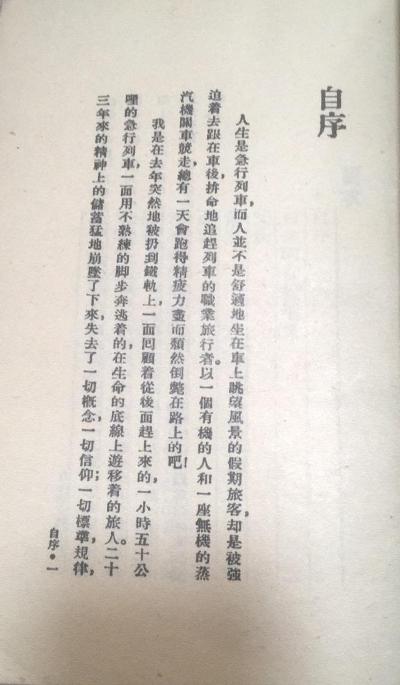 自序
人生是急行列車，而人並不是舒適地坐在車上眺望風景的假期旅客，却是被強
迫着去跟在車後，拚命地追趕列車的職業旅行者。以一個有機的人和一座無機的蒸
汽機關車競走，總有一天會跑得精疲力盡而頹然倒斃在路上的吧！
我是在去年突然地被扔到鐵軌上，一面回顧着從後面趕上來的，一小時五十公
哩的急行列車，一面用不熟練的脚步奔逃着的，在生命的底線上遊移着的旅人。二十
三年來的精神上的儲蓄猛地崩墜了下來，失去了一切概念，一切信仰；一切標準，規律，
自序·一